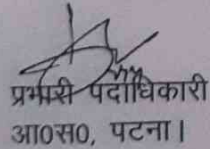 प्रभारी पदाधिकारी
आ0स0, पटना।